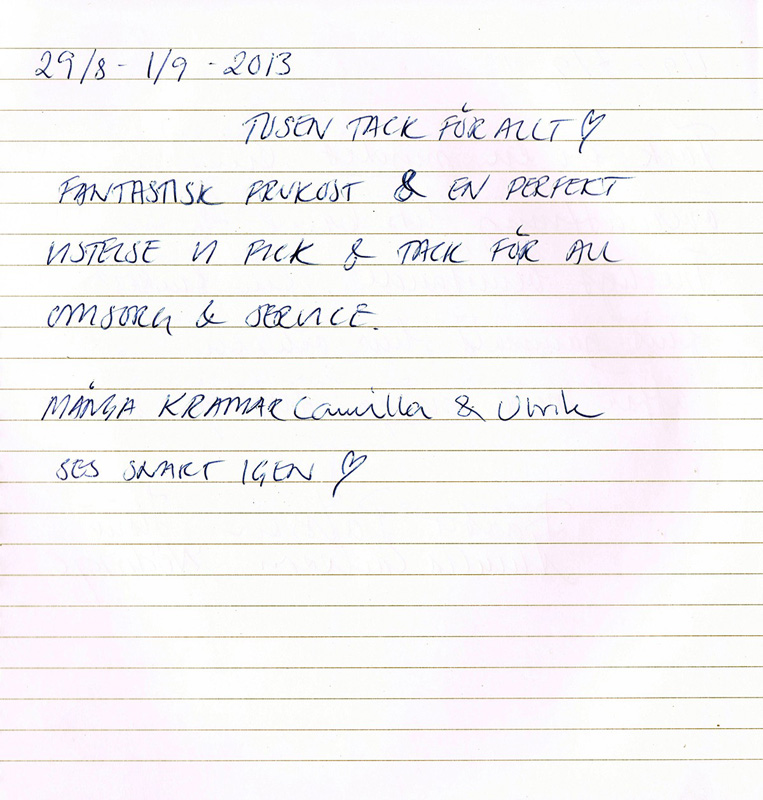 29/8 - 1/9 - 2013
TUSEN TACK FÖR ALLT ♡
FANTASTISK FRUKOST & EN PERFEKT
VISTELSE VI FICK & TACK FÖR ALL
OMSORG & SERVICE.
MÅNGA KRAMAR Camilla & Ulrik
SES SNART IGEN ♡